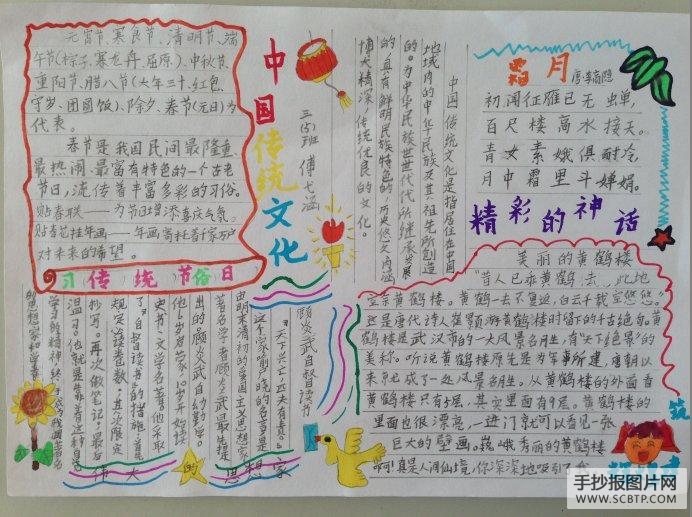 元宵节、寒食节、清明节、端
午节(粽子、赛龙舟、屈原)、中秋节、
重阳节、腊八节(大年三十、红包、
守岁、团圆饭)、除夕、春节(元日)为
代表。
春节是我国民间最隆重、
最热闹、最富有特色的一个古老
节日,流传着丰富多彩的习俗。
贴春联——为节日增添喜庆气氛。
对未来的希望。
习 传统 节俗 日
中国传统文化
三(5)班
中国传统文化是指居住在中国
地域内的中华民族及其祖先所创造
的。为中华民族世世代代所继承发展
的,具有鲜明民族特色的,历史悠久,内涵
博大精深,传统优良的文化。
霜月
唐·李商隐
初闻征雁已无蝉,
百尺楼高水接天。
青女素娥俱耐冷,
月中霜里斗婵娟。
精彩的神话
美丽的黄鹤楼
"昔人已乘黄鹤去,此地
空余黄鹤楼。黄鹤一去不复返,白云千载空悠悠。"
这是唐代诗人崔颢游黄鹤楼时留下的千古绝句。黄
鹤楼是武汉市的一大风景名胜,有"天下绝景"的
美称。听说黄鹤楼原先是为军事所建,唐朝以
来就成了一处风景名胜。从黄鹤楼的外面看
黄鹤楼只有5层,其实里面有9层。黄鹤楼的
里面也很漂亮,一进门就可以看见一张
巨大的壁画。巍峨秀丽的黄鹤楼
啊!真是人间仙境,你深深地吸引了我
顾炎武自督读书
"天下兴亡,匹夫有责。"
这个家喻户晓的名言是
由明末清初的爱国主义思想家、
著名学者顾炎武最先提
出的。顾炎武自幼勤学。
他6岁启蒙,10岁开始读
史书、文学名著。他采取
了"自督读书"的措施:首先
规定读卷数,其次限定
抄写。再次做笔记,最后
温习。他就是靠着这种自
学习的精神,终于成为我国著名
的思想家和学者。
伟大的思想家
手抄报图片网
WWW.SCBTP.COM